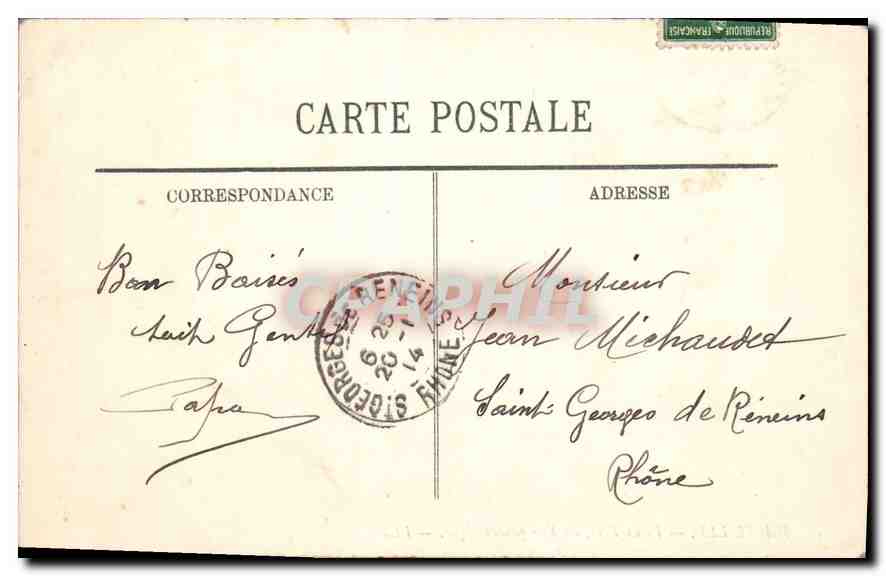 REPUBLIQUE FRANÇAISE
CARTE POSTALE
CORRESPONDANCE
ADRESSE
Bon Baisés
soit Gentil
Papa
Monsieur
Jean Michaudet
Saint-Georges de Réneins
Rhône
ST GEORGES DE RENEINS
6 25
20 -1
14
RHONE
CPAPHIL